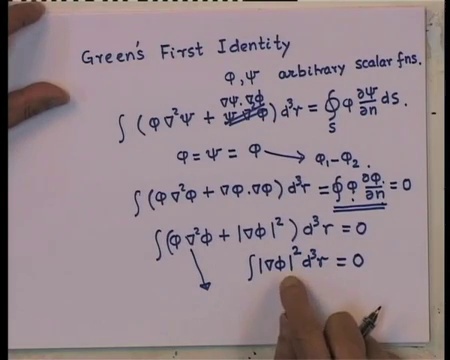 Green's First Identity
φ, ψ arbitrary scalar fns.
∇ψ.∇φ
∫ (φ∇²ψ + ) d³r = ∮_S φ ∂ψ/∂n ds.
φ = ψ = φ → φ₁-φ₂.
∫ (φ∇²φ + ∇φ.∇φ) d³r = ∮ φ ∂φ/∂n = 0
∫ (φ∇²φ + |∇φ|²) d³r = 0
∫ |∇φ|² d³r = 0